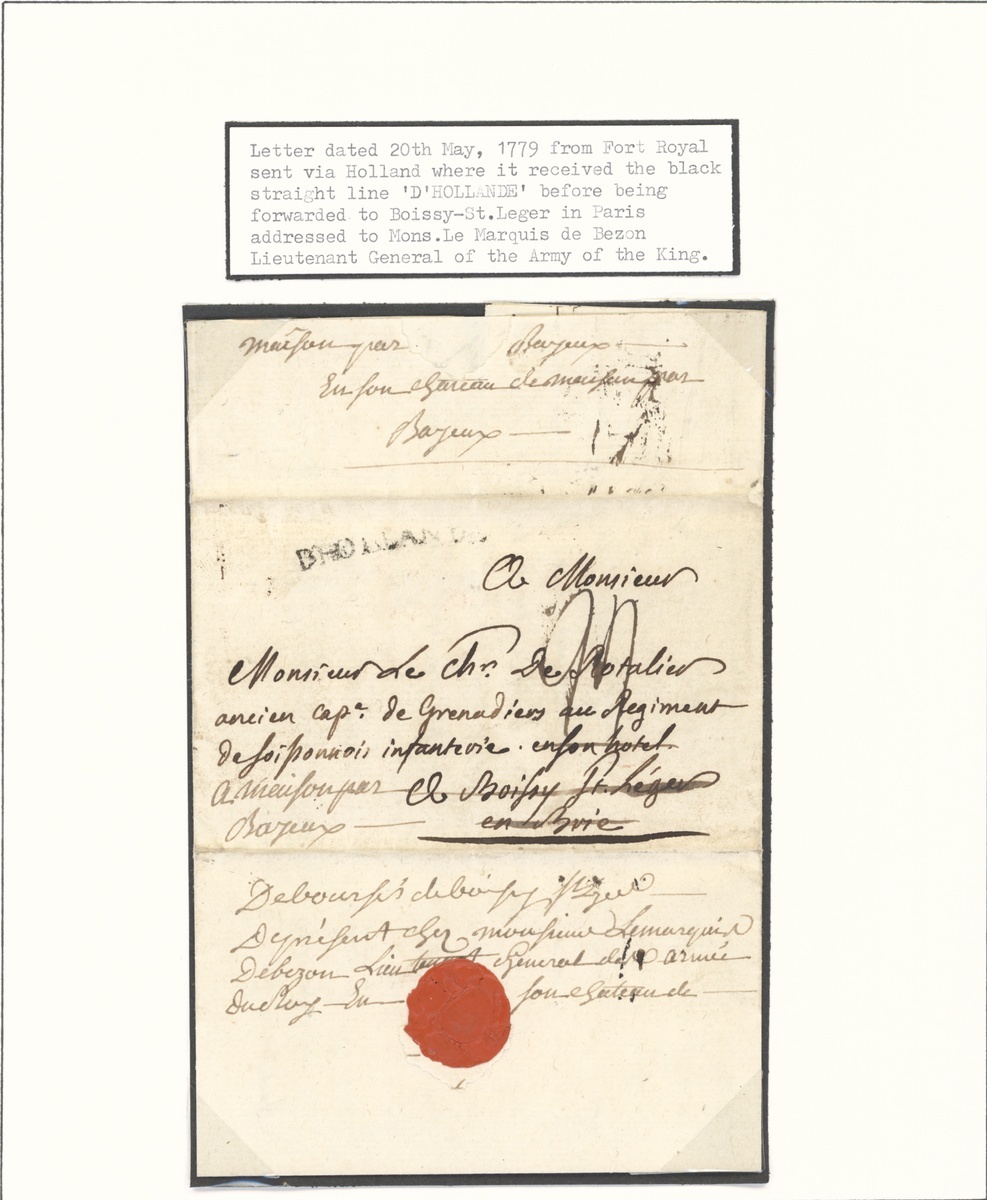 Letter dated 20th May, 1779 from Fort Royal
sent via Holland where it received the black
straight line 'D'HOLLANDE' before being
forwarded to Boissy-St.Leger in Paris
addressed to Mons.Le Marquis de Bezon
Lieutenant General of the Army of the King.
maison par Bayeux
En son chateau de maison par
Bayeux
D'HOLLANDE
A Monsieur
Monsieur Le Chr. De Rotalier
ancien cape. de Grenadiers au Regiment
de soissonnois infanterie. en son hotel
a maison par A Boissy St. Léger
Bayeux en Brie
Debourse de boissy st leger
De présent chez monsieur Lemarquis
Debezon Lieutenant General des armée
du Roy En son chateau de